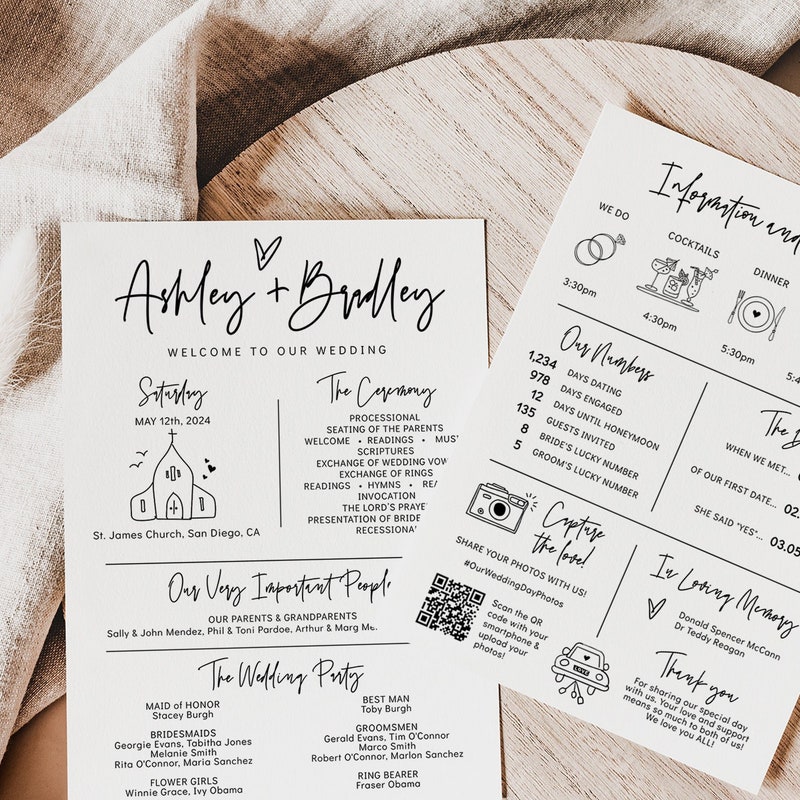 Ashley + Bradley
WELCOME TO OUR WEDDING
Saturday
MAY 12th, 2024
St. James Church, San Diego, CA
The Ceremony
PROCESSIONAL
SEATING OF THE PARENTS
WELCOME • READINGS • MUS
SCRIPTURES
EXCHANGE OF WEDDING VOW
EXCHANGE OF RINGS
READINGS • HYMNS • REA
INVOCATION
THE LORD'S PRAYE
PRESENTATION OF BRIDE
RECESSIONA
Our Very Important People
OUR PARENTS & GRANDPARENTS
Sally & John Mendez, Phil & Toni Pardoe, Arthur & Marg
The Wedding Party
MAID of HONOR
Stacey Burgh
BRIDESMAIDS
Georgie Evans, Tabitha Jones
Melanie Smith
Rita O'Connor, Maria Sanchez
FLOWER GIRLS
Winnie Grace, Ivy Obama
BEST MAN
Toby Burgh
GROOMSMEN
Gerald Evans, Tim O'Connor
Marco Smith
Robert O'Connor, Marlon Sanchez
RING BEARER
Fraser Obama
Information and
WE DO
3:30pm
COCKTAILS
4:30pm
DINNER
5:30pm
5:4
Our Numbers
1,234 DAYS DATING
978 DAYS ENGAGED
12 DAYS UNTIL HONEYMOON
135 GUESTS INVITED
8 BRIDE'S LUCKY NUMBER
5 GROOM'S LUCKY NUMBER
The
WHEN WE MET...
OF OUR FIRST DATE... 02.
SHE SAID "YES"... 03.05
Capture
the love!
SHARE YOUR PHOTOS WITH US!
#OurWeddingDayPhotos
Scan the QR
code with your
smartphone &
upload your
photos!
LOVE
In Loving Memory
Donald Spencer McCann
Dr Teddy Reagan
Thank you
For sharing our special day
with us. Your love and support
means so much to both of us!
We love you ALL!